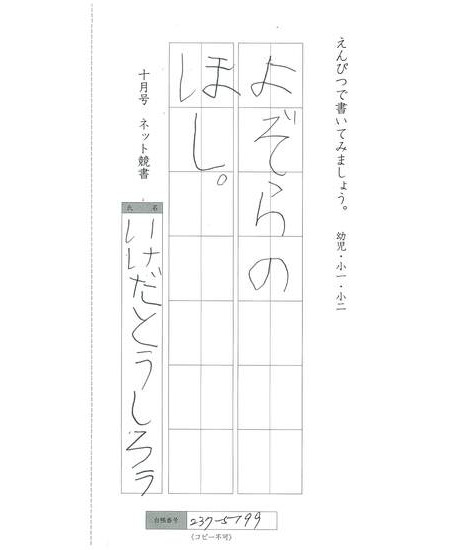 えんぴつで書いてみましょう。 幼児・小一・小二
よぞらの
ほし。
十月号 ネット競書
氏名
いけだとうしろう
台帳番号 237-5799
（コピー不可）